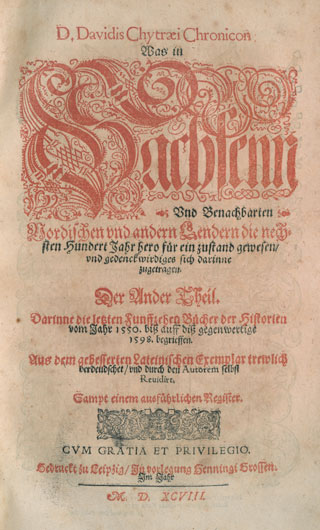 D. Davidis Chytræi Chronicon
Was in
Sachsenn
Vnd Benachbarten
Nordischen vnd andern Lendern die nech-
sten Hundert Jahr hero für ein zustand gewesen/
vnd gedenckwirdiges sich darinne
zugetragen.
Der Ander Theil.
Darinne die letzten Funfftzehen Bücher der Historien
vom Jahr 1550. biß auff diß gegenwertige
1598. begrieffen.
Aus dem gebesserten Lateinischen Exemplar trewlich
verdeudschet/ vnd durch den Autorem selbst
Reuidirt.
Sampt einem ausführlichen Register.
CVM GRATIA ET PRIVILEGIO.
Gedruckt zu Leipzig/ In vorlegung Henningi Grossen.
Im Jahr
M. D. XCVIII.